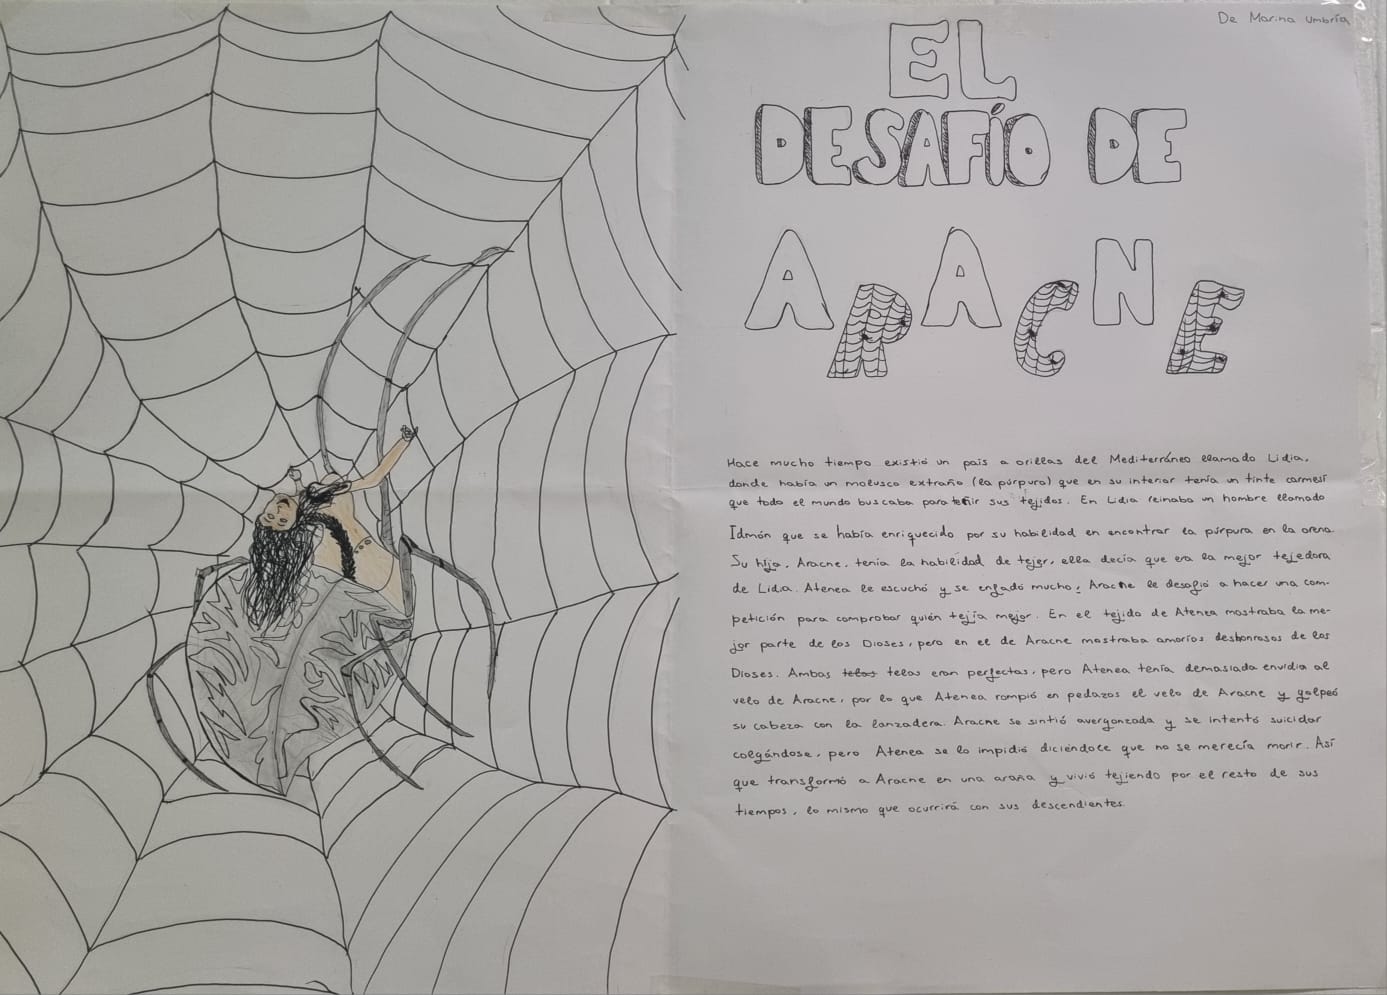 De Marina Umbría
EL
DESAFÍO DE
ARACNE
Hace mucho tiempo existió un país a orillas del Mediterráneo llamado Lidia,
donde había un molusco extraño (la púrpura) que en su interior tenía un tinte carmesí
que todo el mundo buscaba para teñir sus tejidos. En Lidia reinaba un hombre llamado
Idmón que se había enriquecido por su habilidad en encontrar la púrpura en la arena.
Su hija, Aracne, tenía la habilidad de tejer, ella decía que era la mejor tejedora
de Lidia. Atenea le escuchó y se enfadó mucho; Aracne le desafió a hacer una com-
petición para comprobar quién tejía mejor. En el tejido de Atenea mostraba la me-
jor parte de los Dioses, pero en el de Aracne mostraba amoríos deshonrosos de los
Dioses. Ambas telas telas eran perfectas, pero Atenea tenía demasiada envidia al
velo de Aracne, por lo que Atenea rompió en pedazos el velo de Aracne y golpeó
su cabeza con la lanzadera. Aracne se sintió avergonzada y se intentó suicidar
colgándose, pero Atenea se lo impidió diciéndoce que no se merecía morir. Así
que transformó a Aracne en una araña y vivió tejiendo por el resto de sus
tiempos, lo mismo que ocurrirá con sus descendientes.